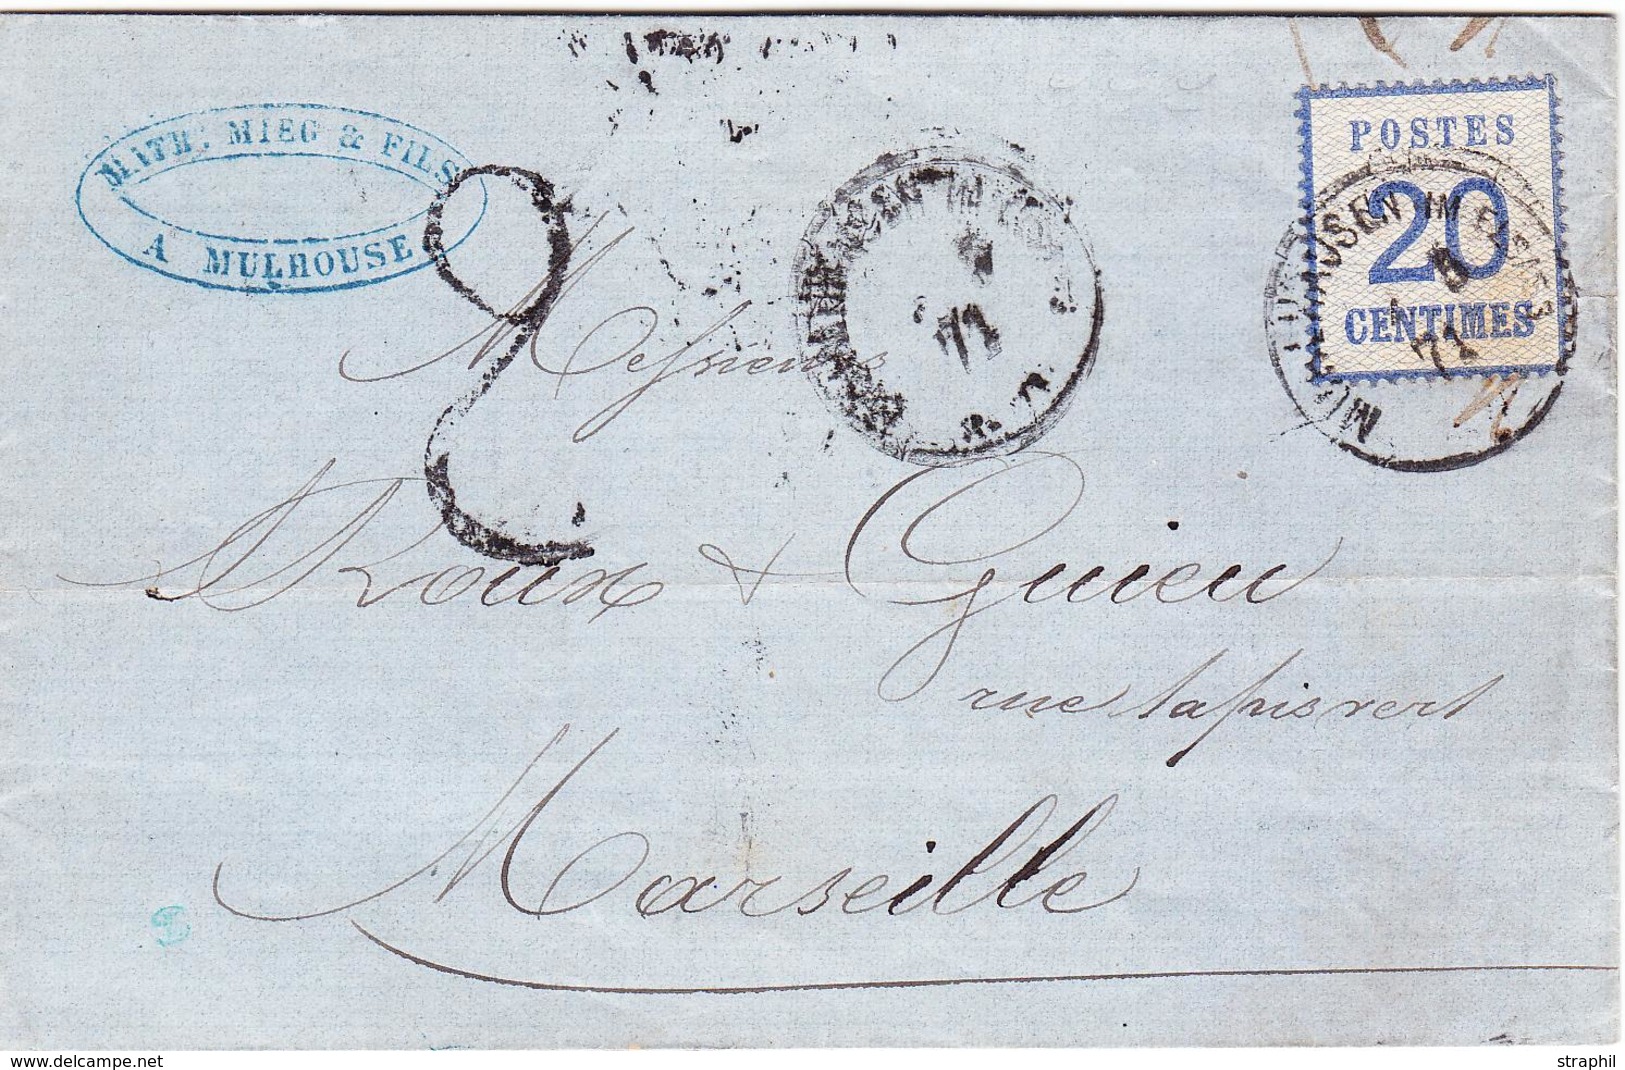 MATH: MIEG & FILS
A MULHOUSE
POSTES
20
CENTIMES
MÜLHAUSEN IM ELSASS
5
71
71
2
Messieurs
Roux & Guieu
rue tapis vert
Marseille
www.delcampe.net
straphil